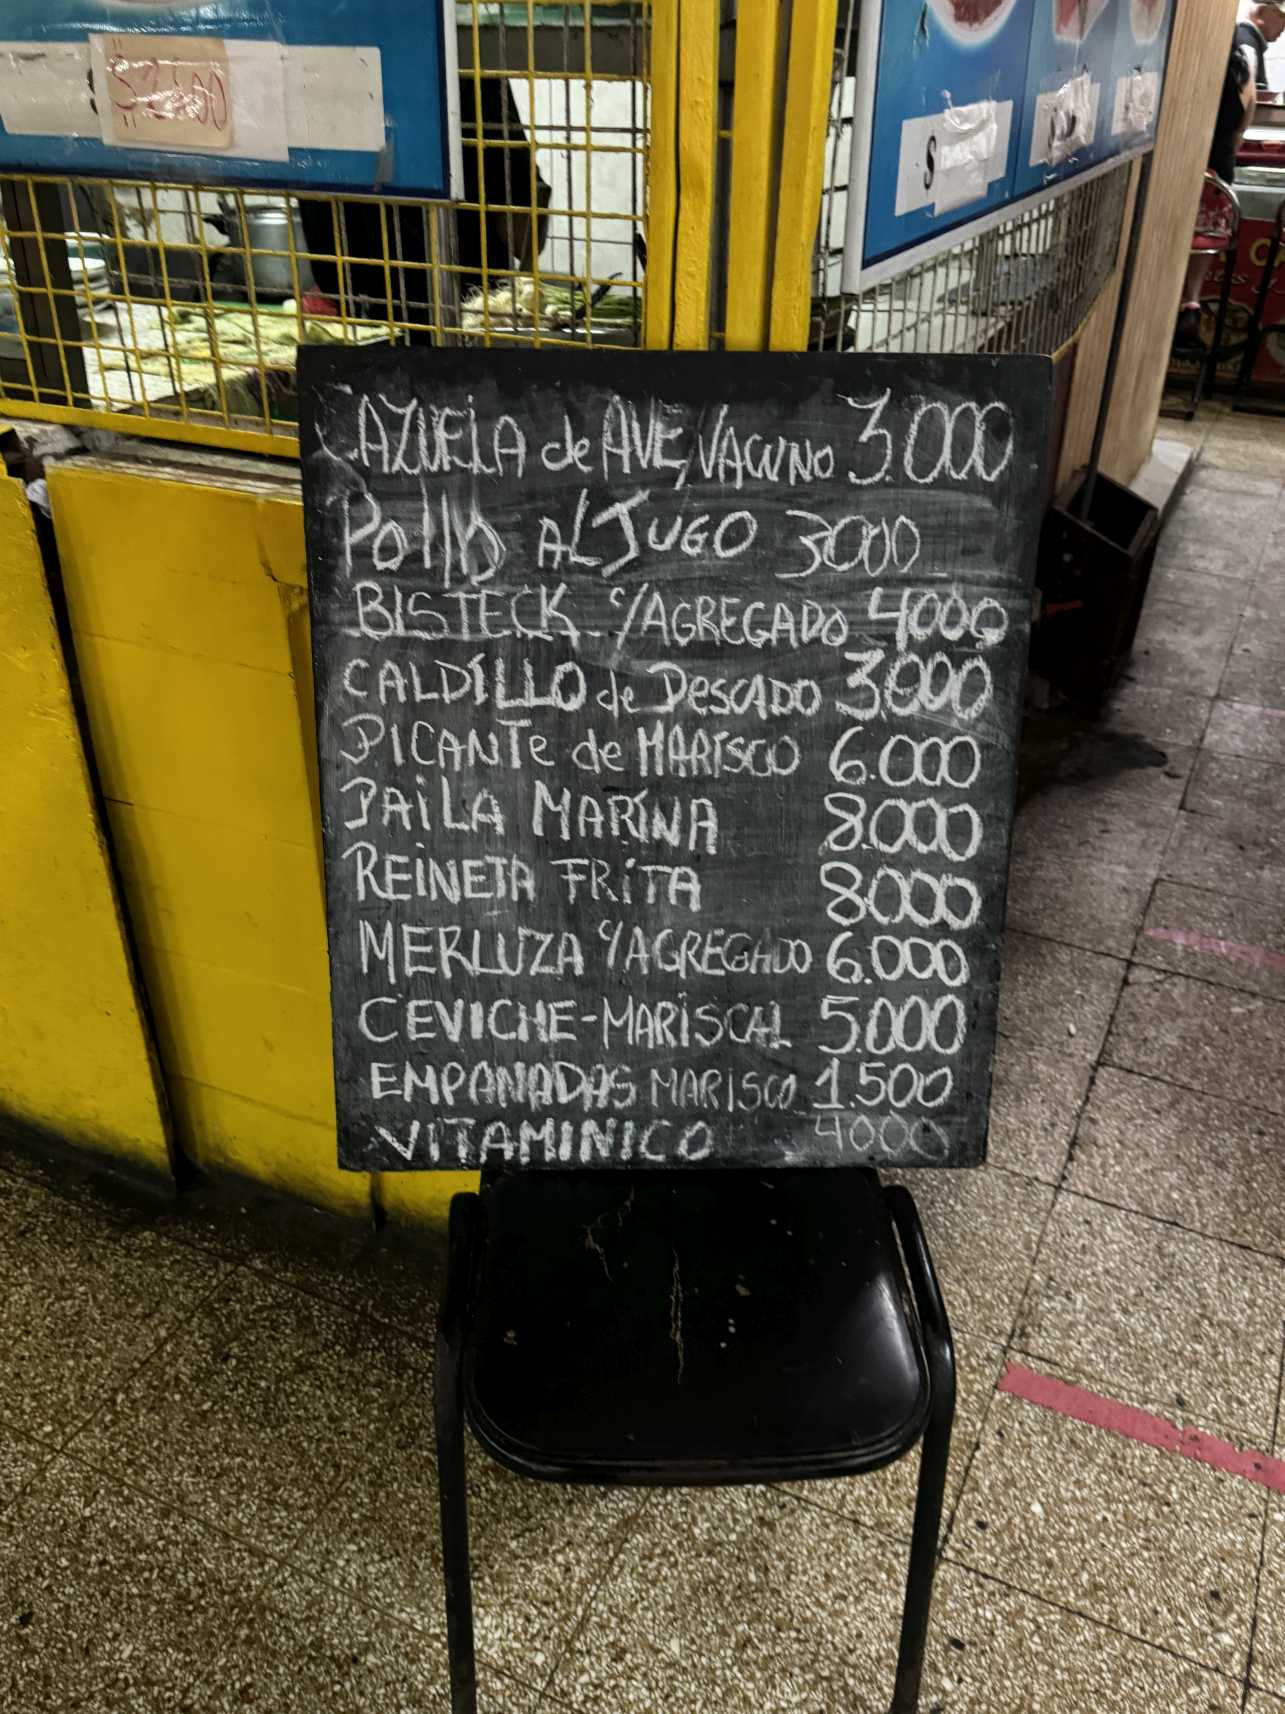 $2.500
$
CAZUELA de AVE, VACUNO 3.000
Pollo AL JUGO 3000
BISTECK c/AGREGADO 4000
CALDILLO de PESCADO 3.000
PICANTe de MARISCO 6.000
PAiLA MARINA 8.000
REiNETA FRiTA 8.000
MERLUZA c/AGREGADO 6.000
CEVICHE-MARISCAL 5.000
EMPANADAS MARISCO 1.500
VITAMINICO 4000